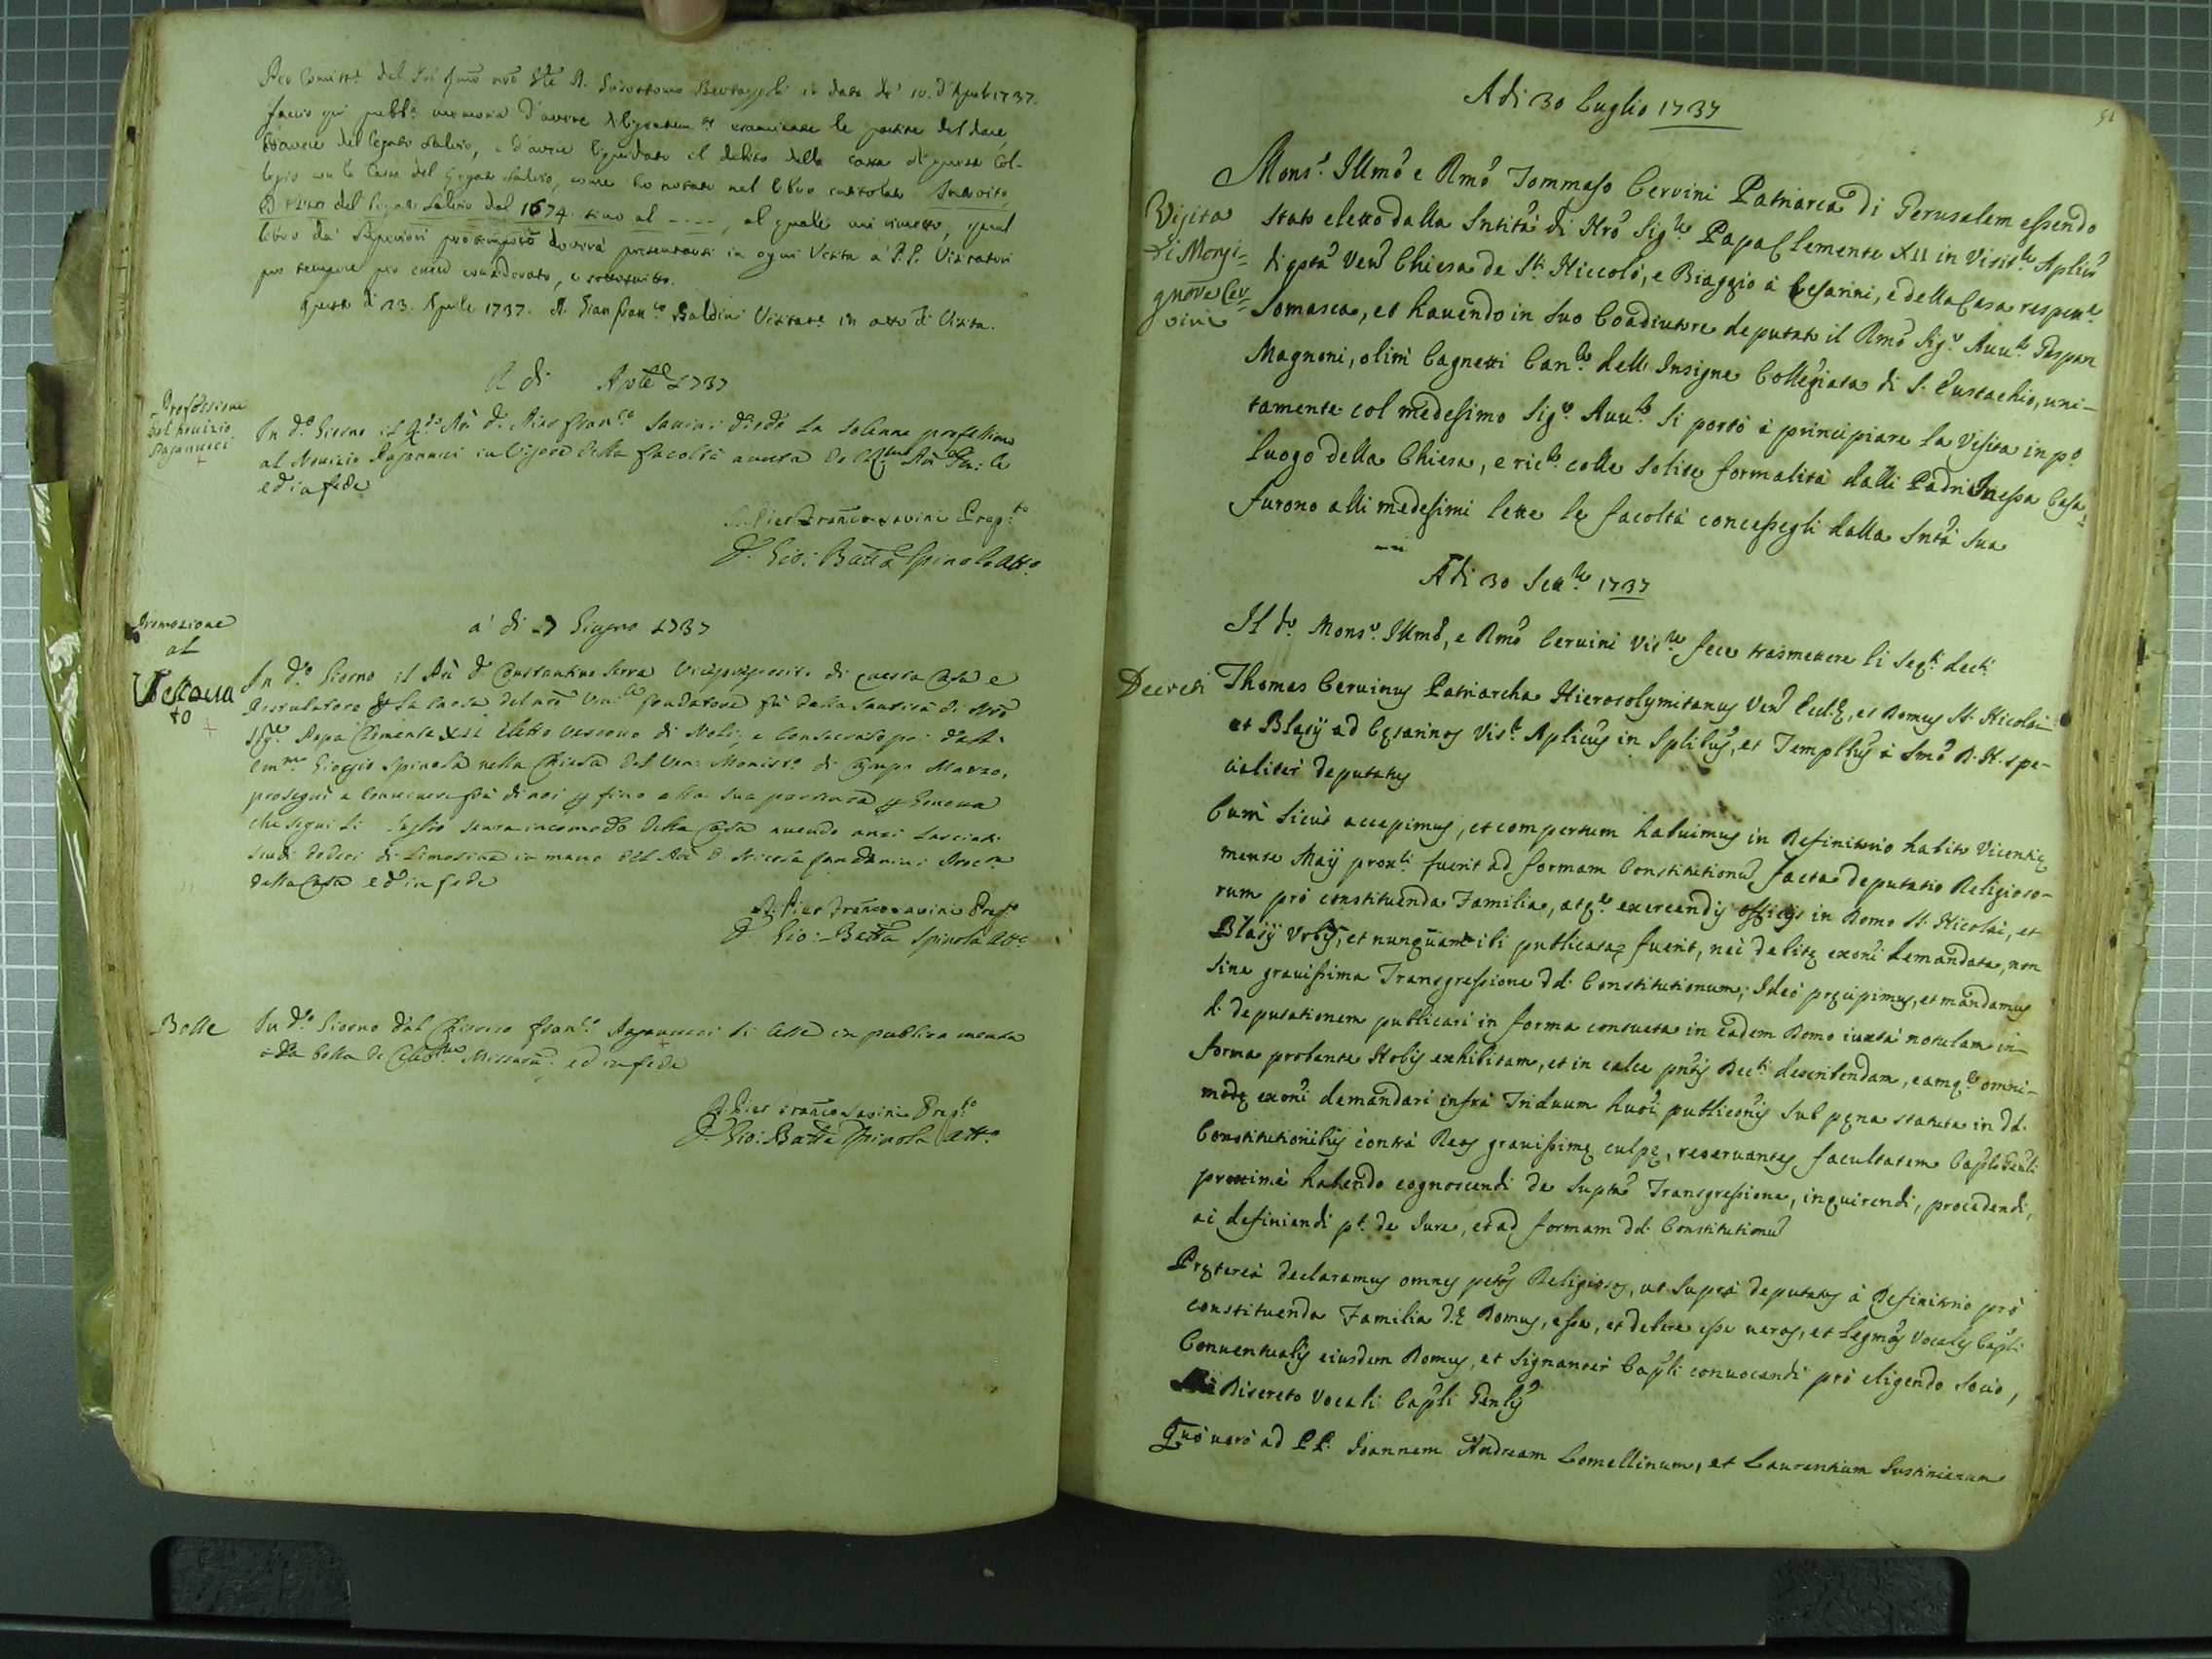 facio qui pubb.ª memoria d'avere diligentem.te esaminate le partite del dare,
e d'avere del legato Salvio, e d'avere liquidato il debito della cassa di questo Col-
legio con la cassa del legato Salvio, come ho notato nel libro cartolato
del legato Salvio dal 1674 sino al - - - -, al quale mi rimetto, qual
libro da' Superiori dovrà presentarsi in ogni Visita a' P.P. Visitatori
pro tempore per esser considerato, e sottoscritto.
Questo dì 23. Aprile 1737. D. Gian Fran.co Baldini Visitat.e in atto di Visita.
A di Aple 1737
Professione
del Novizio
Paganucci
In d.º Giorno il D. Pier Fran.co Savini diede la solenne professione
al Novizio Paganucci in vigore della facoltà avuta
ed in fede
D. Pier Franco Savini Prep.to
D. Gio: Batta Spinola Att.º
a' di 7 Giugno 1737
Promozione
al
Vescoua
to
In d.º Giorno il D. Constantino Serra Vicepreposito di questa Casa e
Postulatore la Causa del nrõ Ven.le fondatore fù dalla Santità di Nrõ
Sig.re Papa Clemente XII eletto Vescovo di Noli, e Consecrato poi dall'
Em.mo Giorgio Spinola nella Chiesa del Ven: Monist.º di Campo Marzo,
proseguì a convivere frà di noi fino alla sua partenza Genova
che seguì li Luglio senza incomodo della Casa avendo anzi lasciati
scudi dodeci di limosina in mano del D. Nicola
della Casa ed in fede
D. Pier Franco Savini Prep.to
D. Gio: Batta Spinola Att.º
Bolle
In d.º Giorno dal Chierico Fran.co Paganucci si lesse in publica mensa
la bolla de Celeb.ne Missarũ. ed in fede
D. Pier Franco Savini Prep.to
D. Gio: Batta Spinola Att.º
51
A di 30 Luglio 1737
Visita
di Monsi=
gnore Cer=
vini
Mons.r Illmõ e Rmõ Tommaso Cervini Patriarca di Gerusalem essendo
stato eletto dalla Sntità di Nrõ Sig.re Papa Clemente XII in Visit.re Aplico
di qsta Ven. Chiesa de S.ti Niccolò, e Biaggio à Cesarini, e della Casa respett.e
Somasca, et hauendo in suo Coadiutore deputato il Rmõ Sig.r Auu.to Gaspar
Magnoni, olim Cagnetti Can.co dell'Insigne Collegiata di S. Eustachio, uni-
tamente col medesimo Sig.r Auu.to si portò à principiare la Visita in p.º
luogo della Chiesa, e ric.to colle solite formalità dalli Padri In essa Casa,
furono alli medesimi lette le facoltà concessegli dalla Sntà Sua
A di 30 Sett.re 1737
Decreti
Il d.º Mons.r Illmõ, e Rmõ Cervini Vis.re fece trasmettere li seq.ti decti
Thomas Cervinus Patriarcha Hierosolymitanus Ven. Eccl.ę, et Domus SS. Nicolai
et Blasij ad Cęsarinos Vis.r Aplicus in Splibus, et Templibus à Smõ D. N. spe-
cialiter deputatus
Cum sicut accepimus, et compertum habuimus in Definitorio habito Vicentię
mense Maij proxti fuerit ad formam Constitutionũ facta deputatio Religioso-
rum prò constituenda Familia, atq.e exercendis officijs in Domo SS. Nicolai, et
Blasij Vrbis, et nunquam ibi publicata fuerit, nec debitę exoni demandata, non
sine grauissima Transgressione dd. Constitutionum; Ideò pręcipimus, et mandamus
d. deputationem publicari in forma consueta in eadem Domo iuxta notulam in
forma probante Nobis exhibitam, et in calce pntis Decti describendam, eamq.e omni-
modę exoni demandari infrà Triduum huõi publicõnis sub pęna statuta in dd.
Constitutionibus contrà Reos grauissimę culpę, reseruantes facultatem Caplo Genli
proxime habendo cognoscendi de supto Transgressione, inquirendi, procedendi,
ac definiendi pt. de Jure, et ad formam dd. Constitutionũ
Prętereà declaramus omnes pctos Religiosos, ut suprà deputatos à Definitorio prò
constituenda Familia d.ę Domus, esse, et debere esse ueros, et legmos Vocales Capli
Conuentualis eiusdem Domus, et signanter Capli conuocandi prò eligendo Socio,
Discreto Vocali Capli Genlis
Quò uerò ad PP. Joannem Andream Lomellinum, et Laurentium Iustinianum